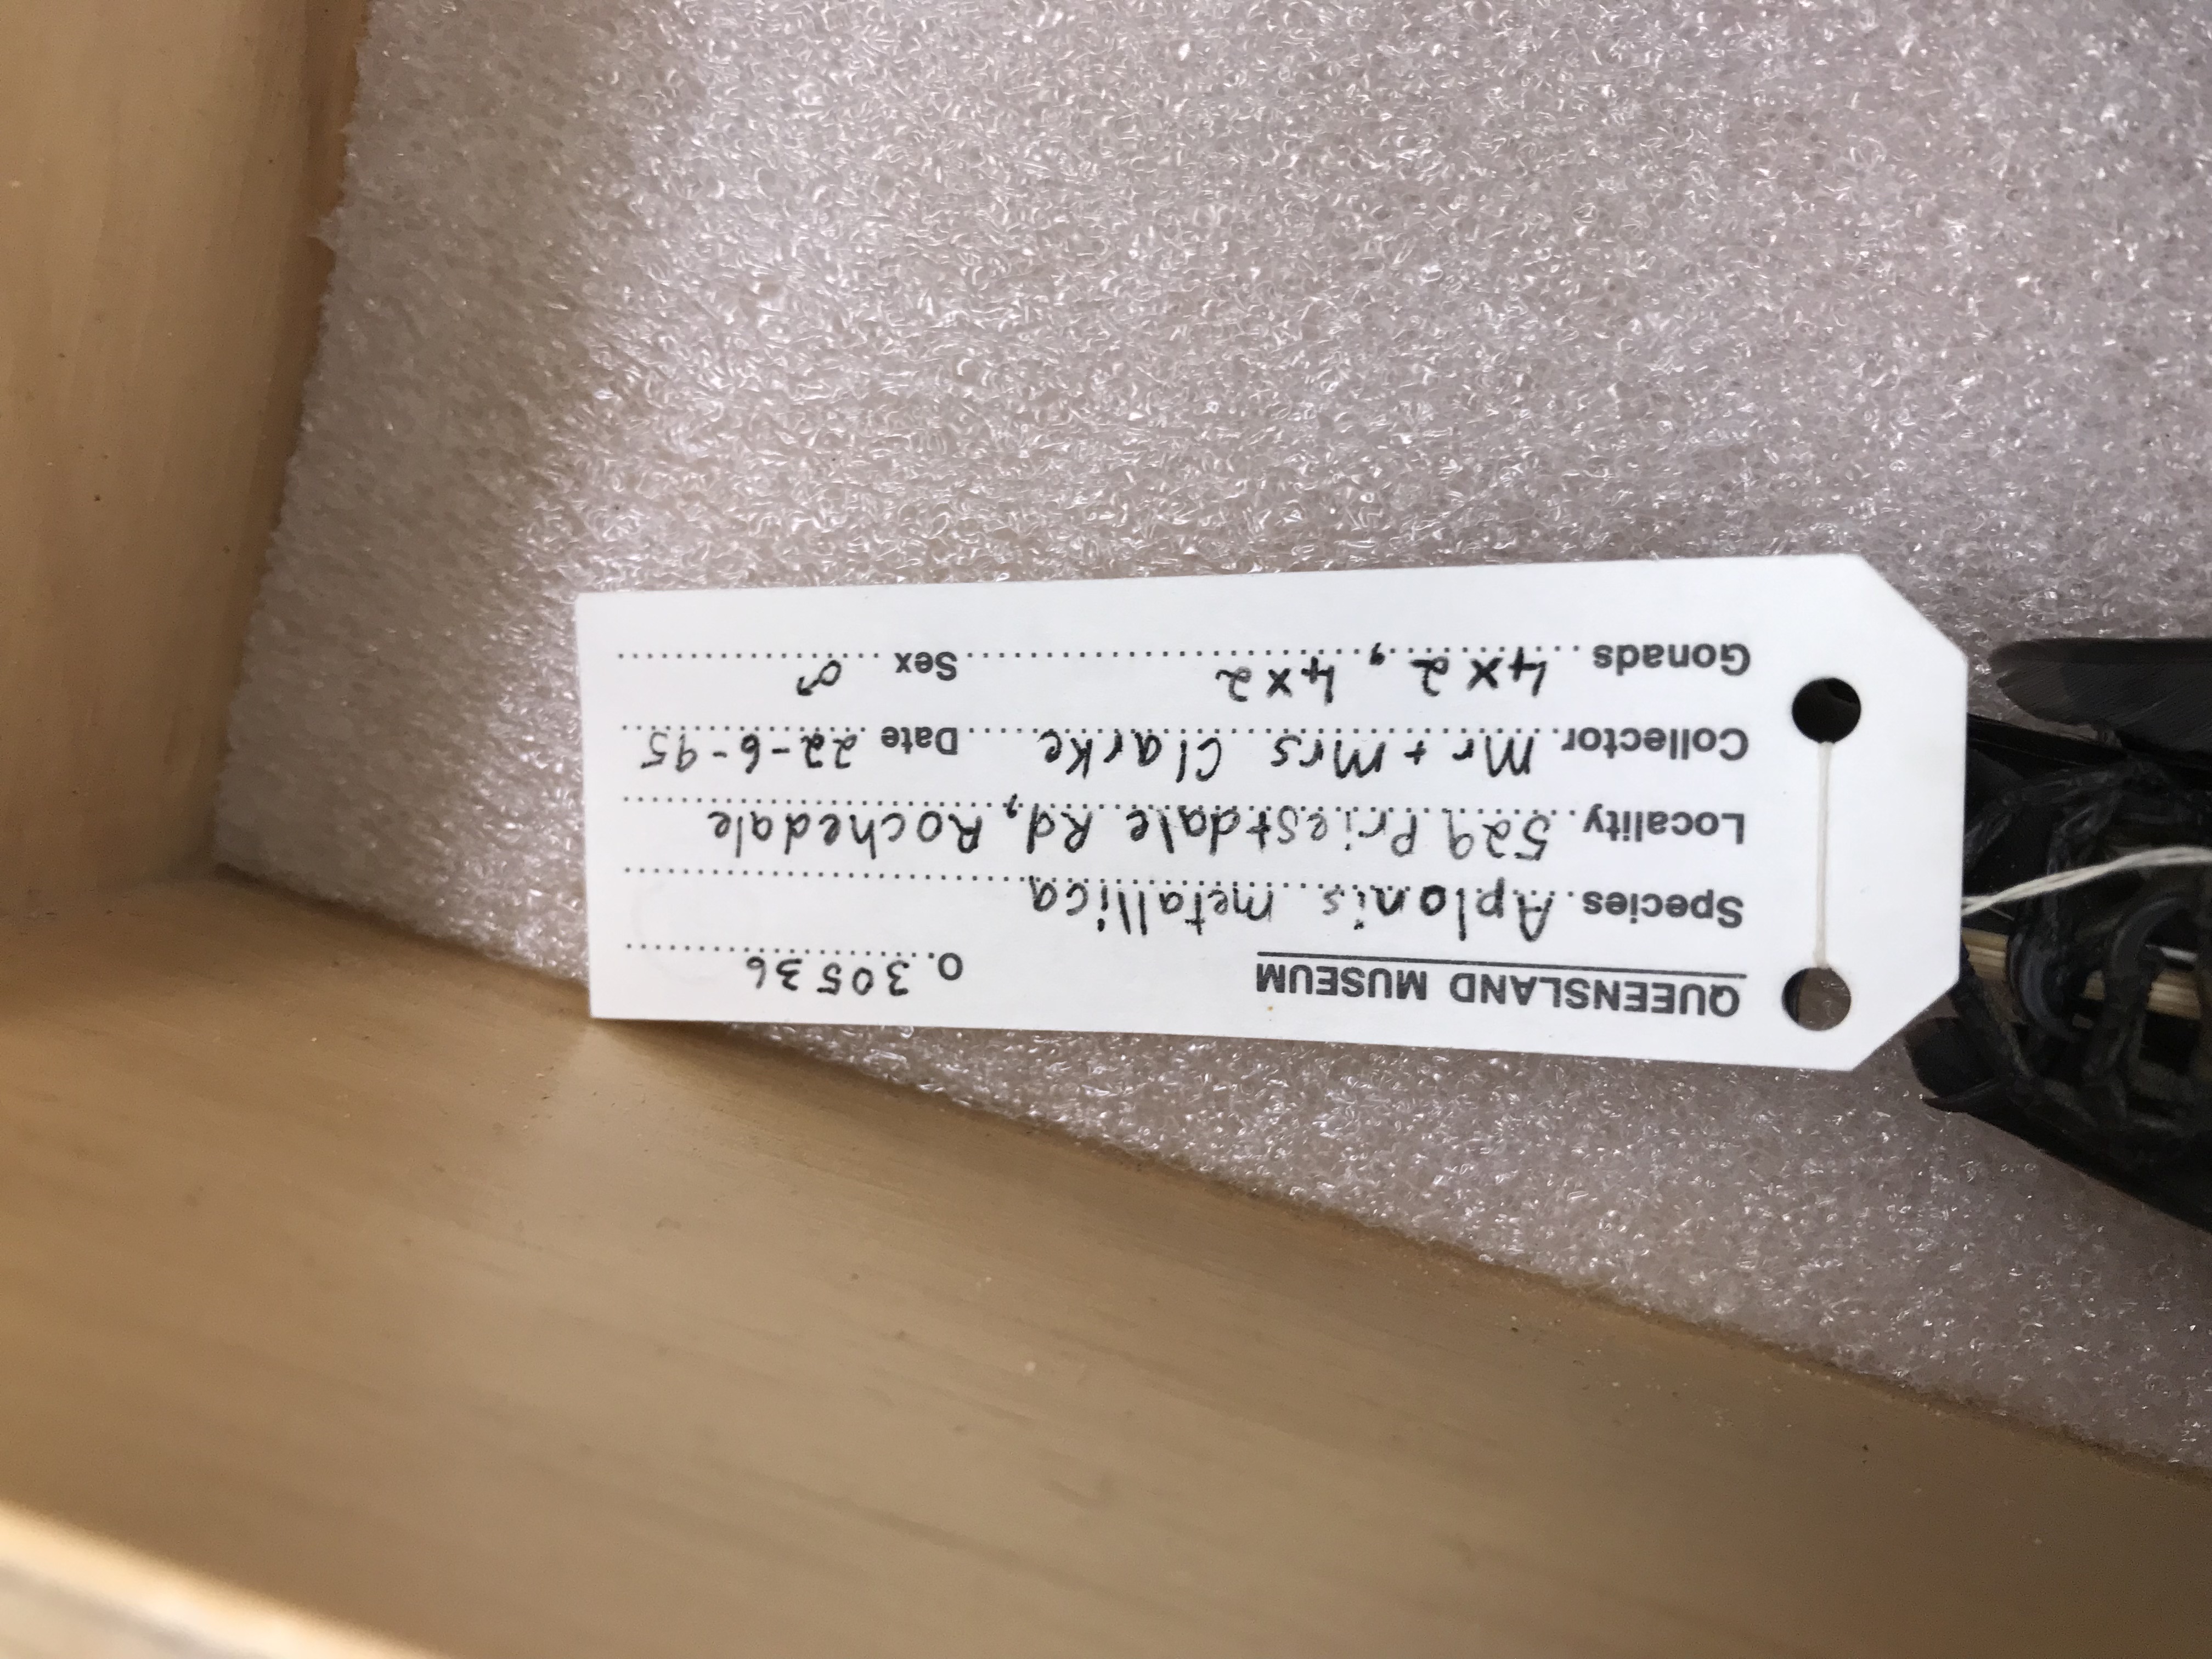 QUEENSLAND MUSEUM O. 30536
Species Aplonis metallica
Locality 529 Priestdale Rd, Rochedale
Collector Mr + Mrs Clarke Date 22-6-95
Gonads 4x2, 4x2 Sex ♂